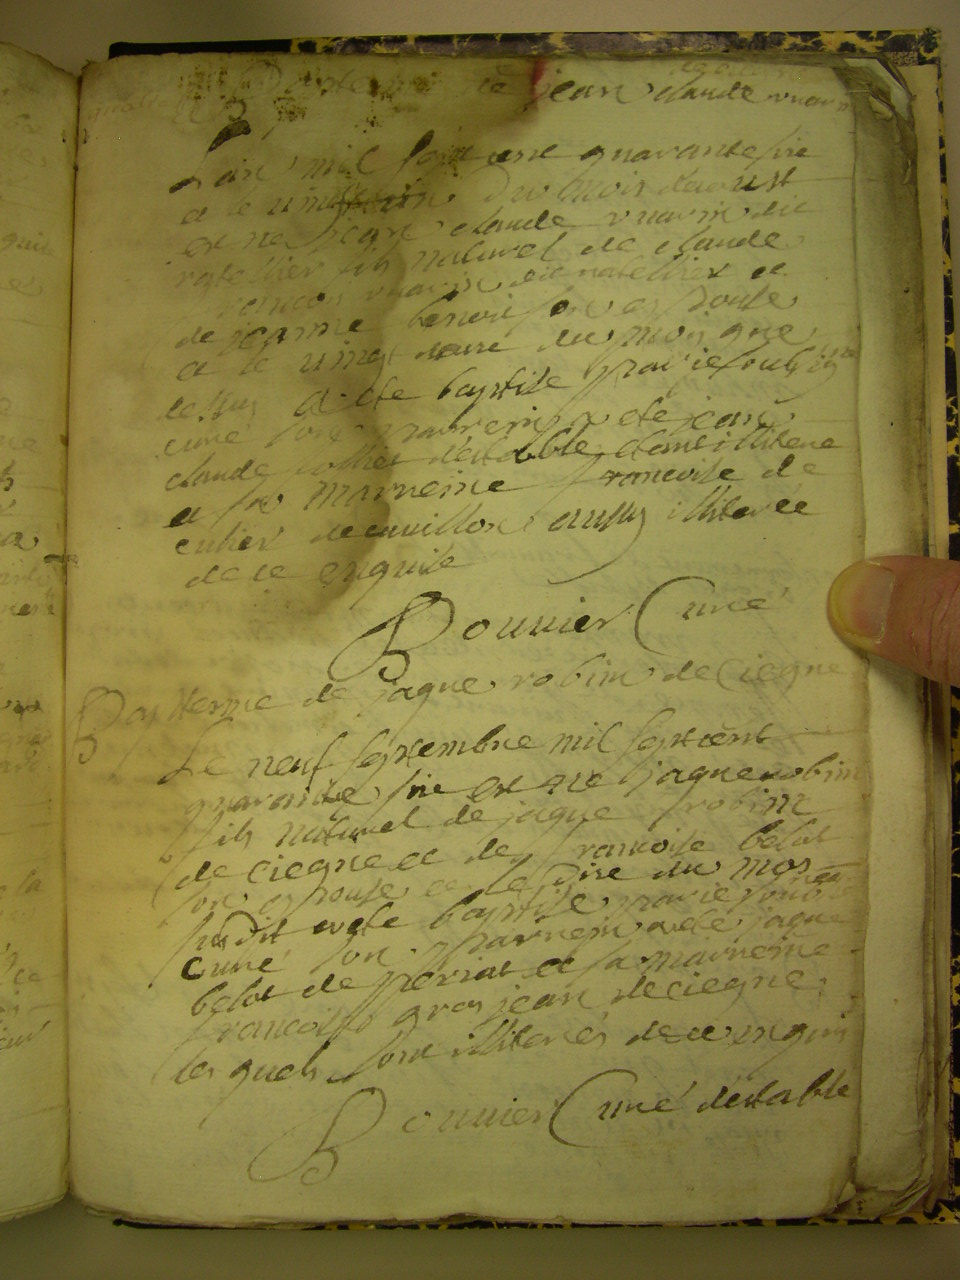 Bapterme de jean claude vuarin
L'an mil sept cent quarante sire
et le vingt un du mois daoust
est ne jean claude vuarin dit
ratellier fils naturel de claude
francois vuarin dit ratellier et
de jeanne benoit son espouse
et le vingt deux du mois que
dessus a ete baptise par ie soubsigne
curé son parrein a ete jean
claude d'estable illitere
et sa marreine francoise de
cuvillon aussy illiterée
de ce enquise
Bouvier Curé
Bapterme de jaque robin de Ciegne
Le neuf septembre mil sept cent
quarante sire est ne jaque robin
fils naturel de jaque robin
de ciegne et de francoise belot
son espouse et le dire du mois
susdit a ete baptise par ie
curé son parrein a ete jaque
belot de periat et sa marreine
francoise gros jean de ciegne
les quels sont illiterés de ce enquis
Bouvier Curé d'estable